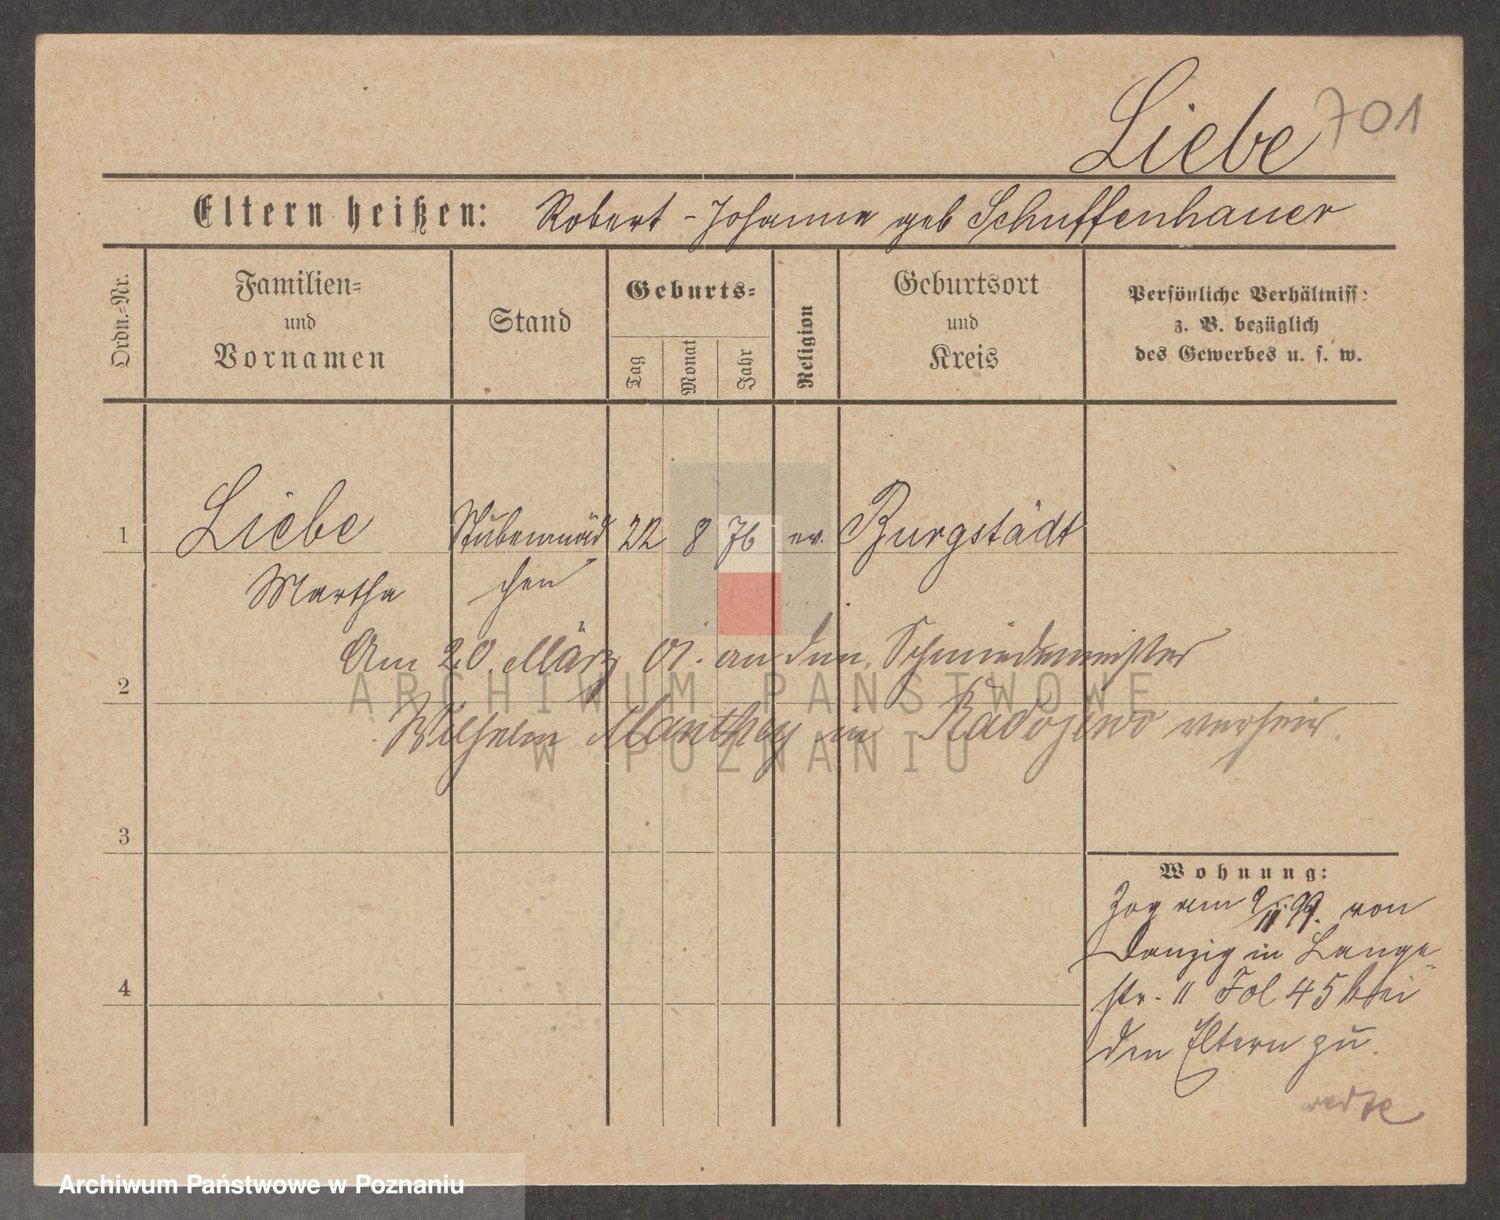 Liebe 701
Eltern heißen: Robert - Johanna geb Schuffenhauer
Ordn.-Nr.
Familien- und Vornamen
Stand
Geburts-
Tag
Monat
Jahr
Religion
Geburtsort und Kreis
Persönliche Verhältniss:
z. B. bezüglich
des Gewerbes u. s. w.
1 Liebe Stubenmäd 22 8 76 ev. Burgstädt
Martha chen
Am 20. März 01. an den Schmiedemeister
2
Wilhelm Manthey in Radojewo verheir.
ARCHIWUM PAŃSTWOWE
W POZNANIU
3
Wohnung:
Zog am 9/11 99. von
Danzig in Lange-
str. 11 Fol 45 bei
den Eltern zu.
4
Archiwum Państwowe w Poznaniu